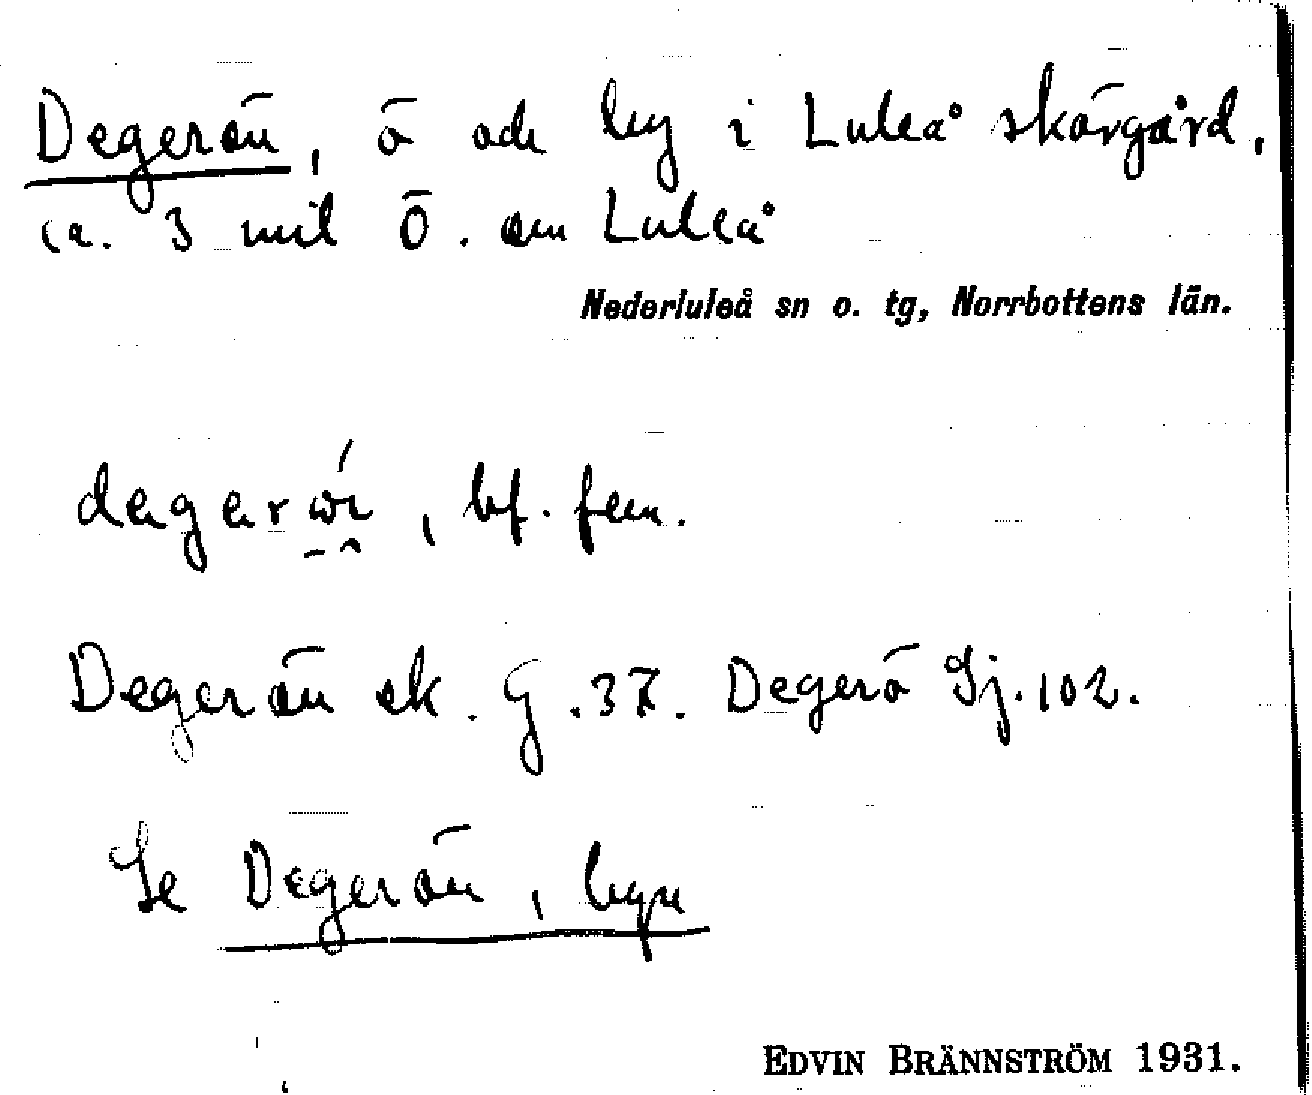 Degerön, ö och by i Luleå skärgård,
ca. 3 mil Ö. om Luleå
Nederluleå sn o. tg, Norrbottens län.
, bf. fem.
Degerön ek. G.37. Degerö Sj.102.
Se Degerön, byn
EDVIN BRÄNNSTRÖM 1931.